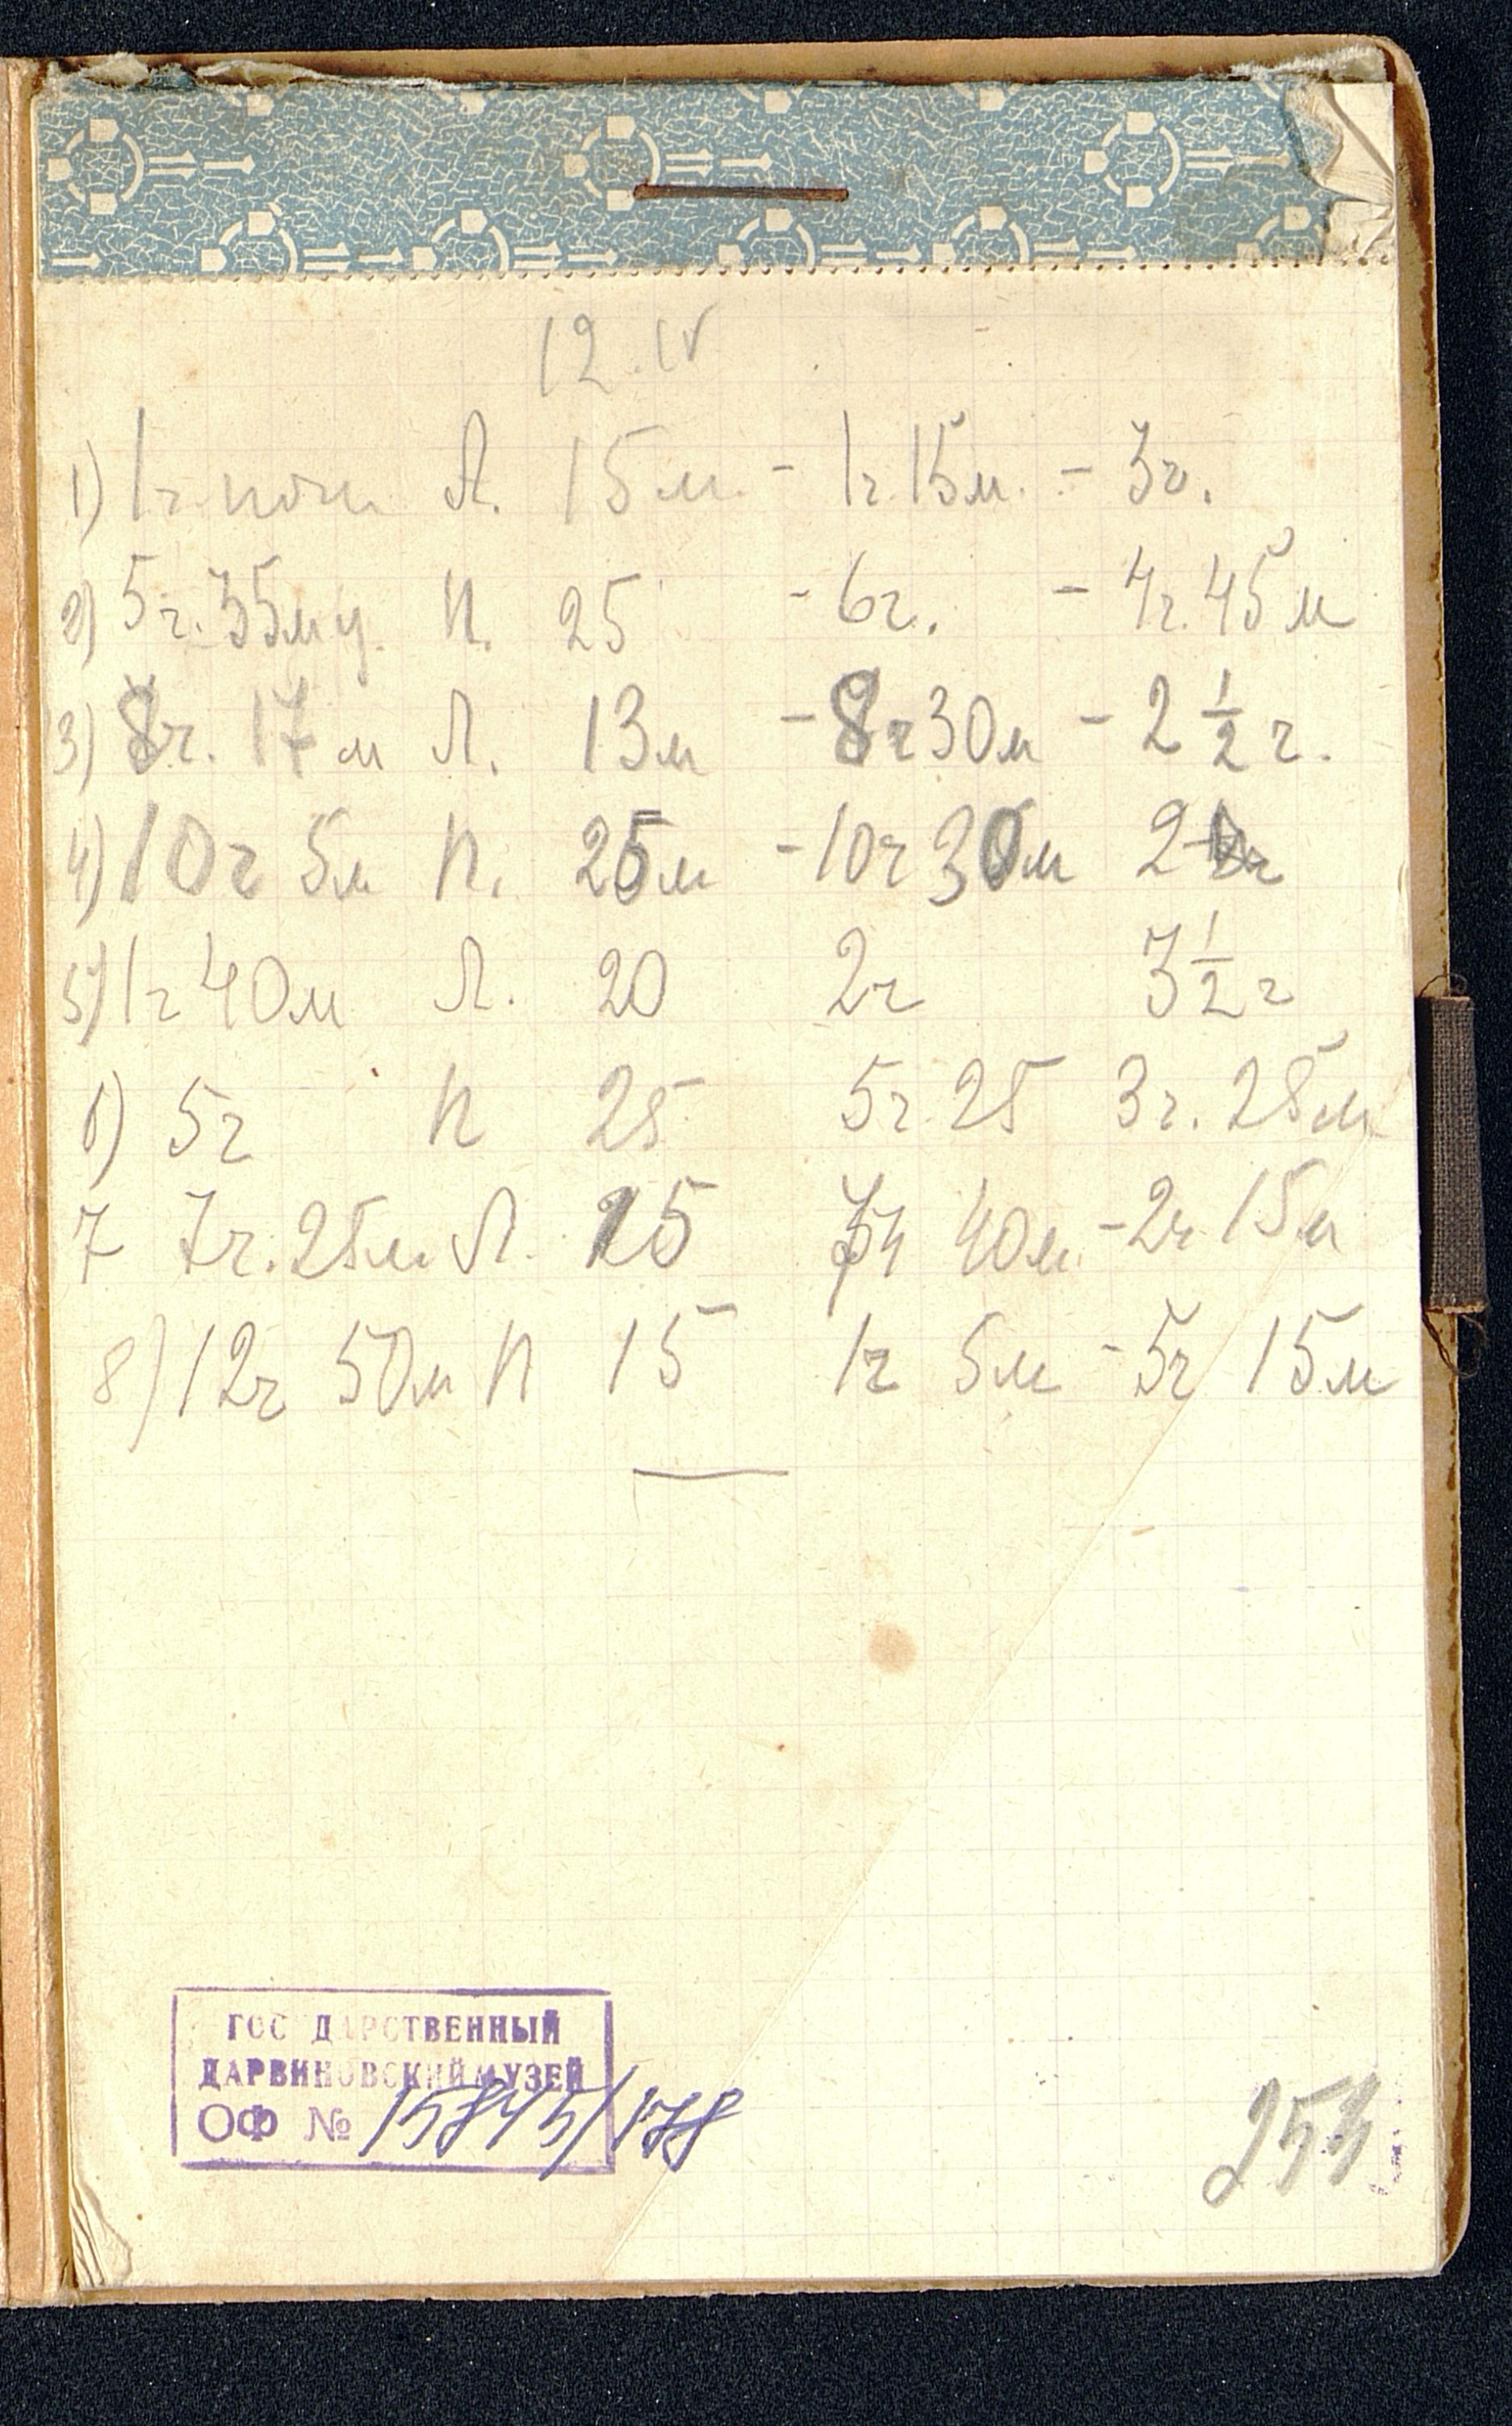 12.IV
1) 1ч. ночи Л. 15 м. - 1ч. 15 м. - 3ч.
2) 5ч. 35м у. П. 25 - 6ч. - 4ч. 45 м
3) 8ч. 17 м Л. 13 м - 8ч 30м - 2 1/2 ч.
4) 10ч 5м П. 25м - 10ч 30м 2 ч
5) 1ч 40м Л. 20 2ч 3 1/2 ч
6) 5ч П 25 5ч 25 3ч. 25м
7 7ч. 25м Л. 15 7ч 40м. - 2ч. 15м
8) 12ч 50м П 15 1ч 5м - 5ч 15м
ГОСУДАРСТВЕННЫЙ
ДАРВИНОВСКИЙ МУЗЕЙ
ОФ № 15845/178
253